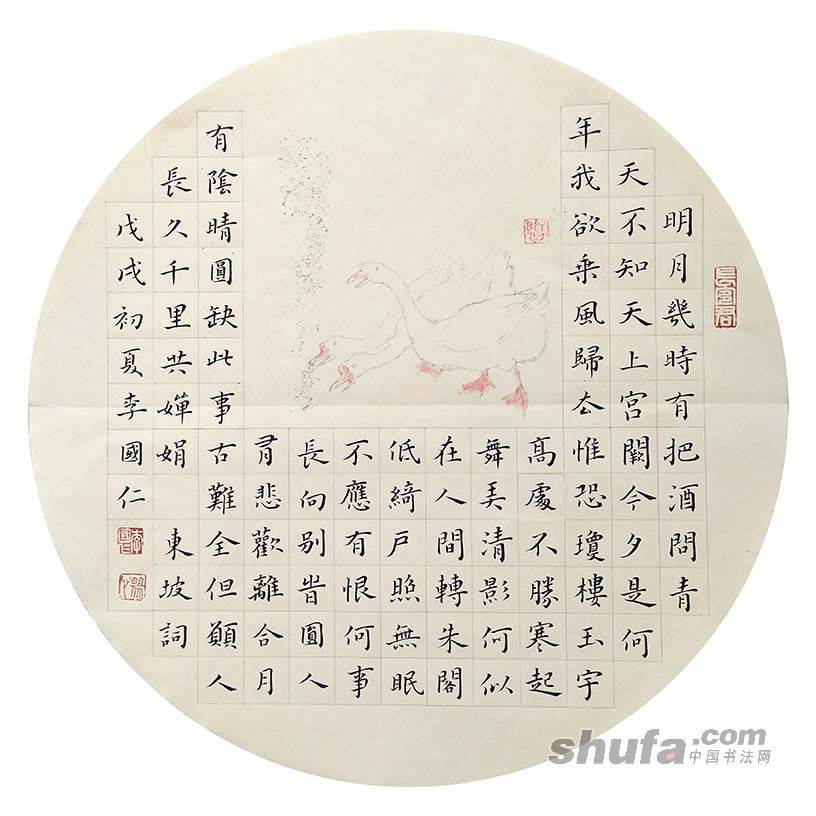 明月幾時有把酒問青
天不知天上宮闕今夕是何
年我欲乘風歸厺惟恐瓊樓玉宇
高處不勝寒起
舞弄清影何似
在人間轉朱閣
低綺戶照無眠
不應有恨何事
長向别旹圓人
有悲歡離合月
有陰晴圓缺此事古難全但願人
長久千里共嬋娟 東坡詞
戊戌初夏李國仁
李國仁
shufa.com
中国书法网